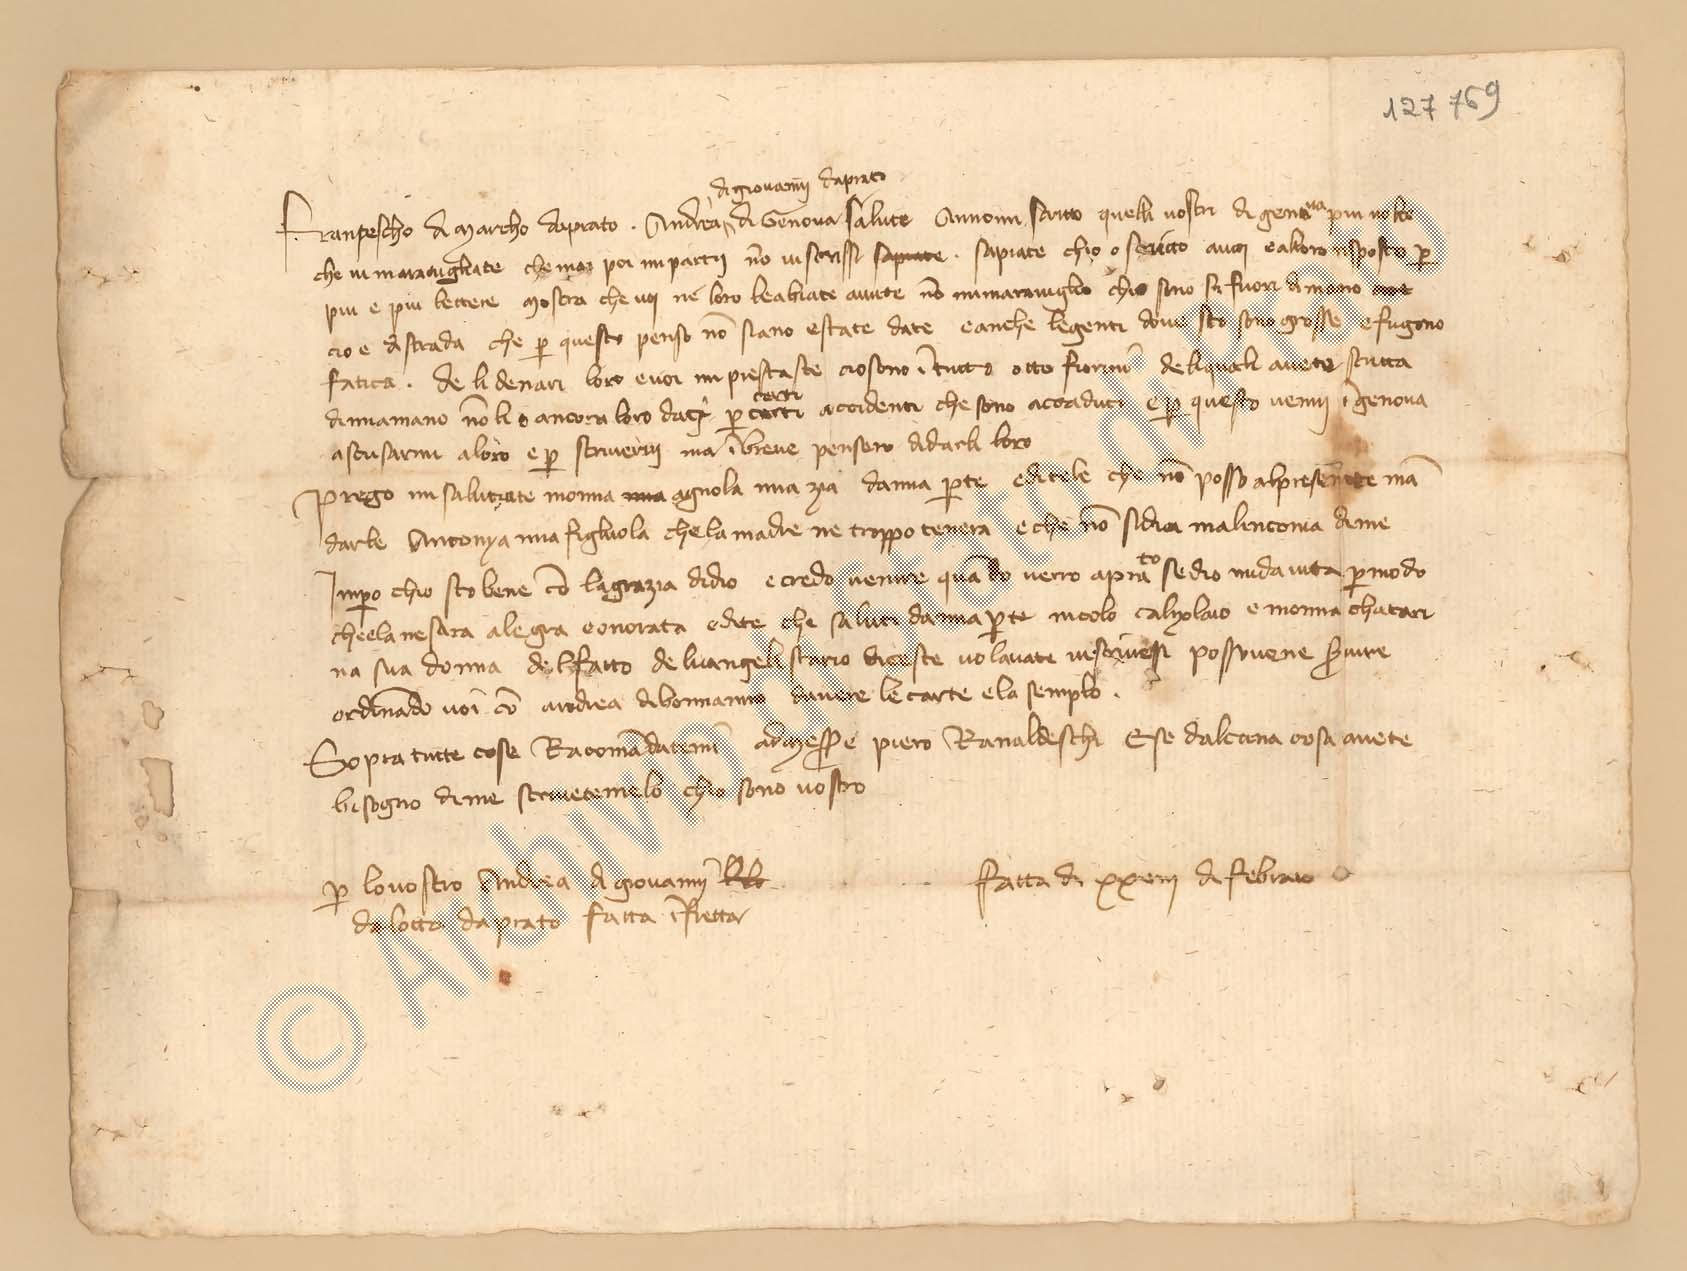 127 769
di giovanni daprato
Francescho di Marcho daprato . Andrea di Genova salute Annomi scritto quelli vostri di genova piu volte
che vi maravigliate che mai poi mi partii nō vi scrissi sapiate . sapiate chio o scritto a voi e a lloro risposto p
piu e piu lettere Mostra che voi ne loro le abiate avute nō mi maraviglio chio sono sì fuori di mano
cio e di strada che p questo penso nō siano estate date e anche le genti dove sto sono grosse e fugono
fatica . de li denari loro e voi mi prestaste cio sono ī tutto otto fiorini de li quali avete scritta
di mia mano nō li o ancora loro dati p certi certi accidenti che sono accaduti e p questo venni ī genova
a scusarmi a loro e p scrivervi ma ī breve pensero di darli loro
Prego mi salutiate monna mia agnola mia zia da mia pte e ditele che nō posso al presente mā
darle Antonya mia figliuola che la madre ne troppo tenera e che nō si dia malinconia di me
Impo chio sto bene cō la grazia didio e credo venire quādo verro a prato se dio mi da vita p modo
che ela ne sara alegra e onorata e dite che saluti da mia pte nicolo calzolaio e monna chatari
na sua donna del fatto de lvangelistario diceste volavate vi scrivessi possovene servire
ordinādo voi cō andrea di bonnanno davere le carte e la semplo .
Sopra tutte cose Racomādatemi a messe piero Ranaldeschi E se dalcuna cosa avete
bisogno di me scrivetemelo chio sono vostro
p lo vostro Andrea di giovanni
da lotto da prato fatta ī fretta
Fatta di xxviii di febraio
© Archivio di Stato di Prato